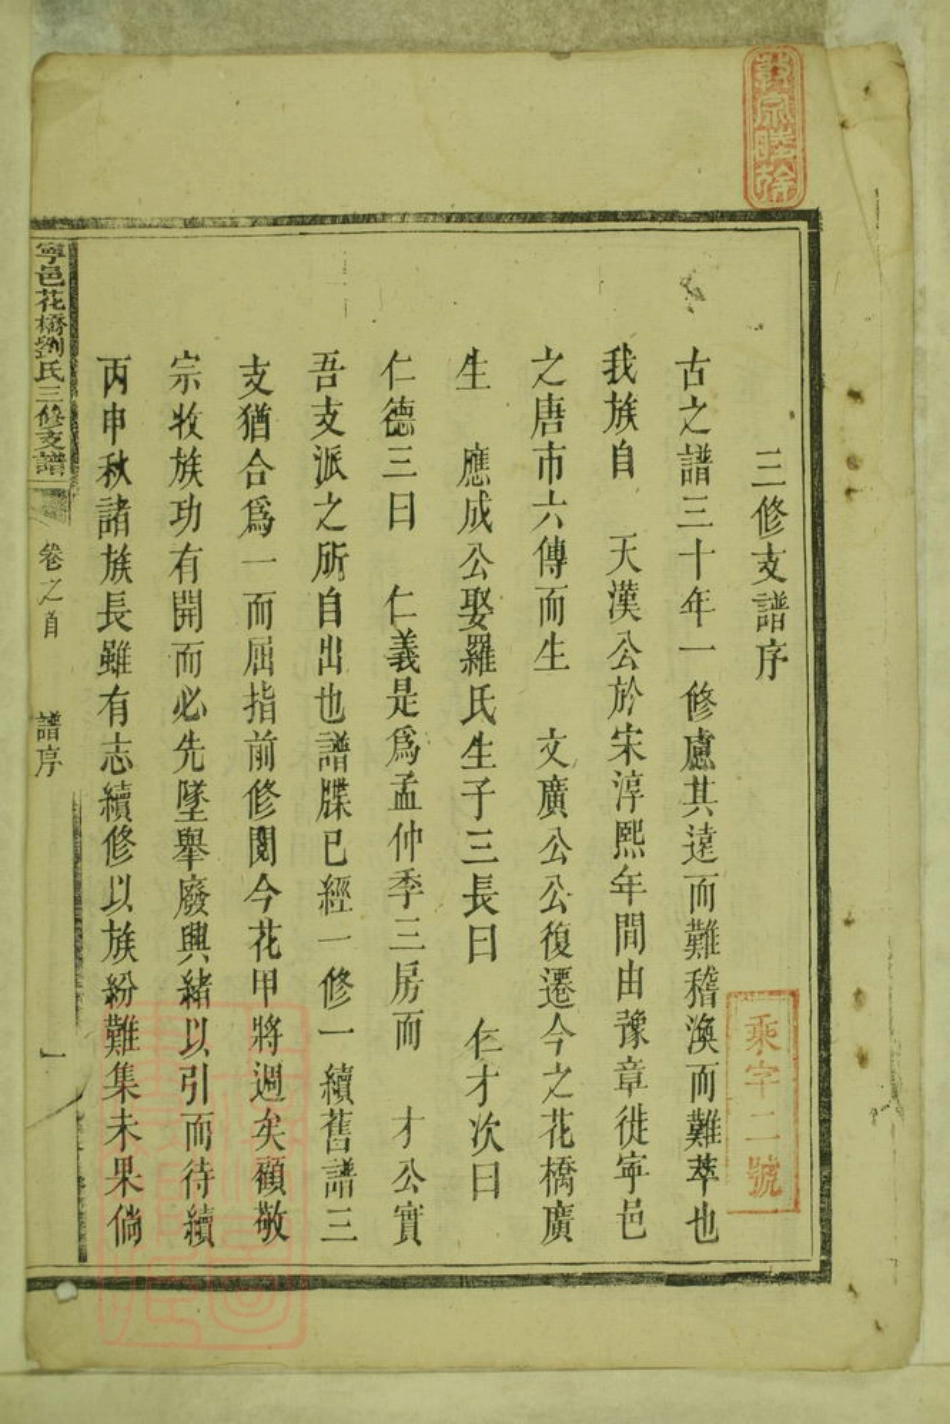 三修支譜序
古之譜三十年一修慮其遠而難稽渙而難萃也
我族自　天漢公於宋淳熙年間由豫章徙寜邑
之唐市六傳而生　文廣公公復遷今之花橋廣
生　應成公娶羅氏生子三長曰　仁才次曰
仁德三曰　仁義是爲孟仲季三房而　才公實
吾支派之所自出也譜牒已經一修一續舊譜三
支猶合爲一而屈指前修閲今花甲將週矣顧敬
宗收族功有開而必先墜舉廢興緒以引而待續
丙申秋諸族長雖有志續修以族紛難集未果倘
寧邑花橋劉氏三修支譜
卷之首
譜序
一
乘字二號